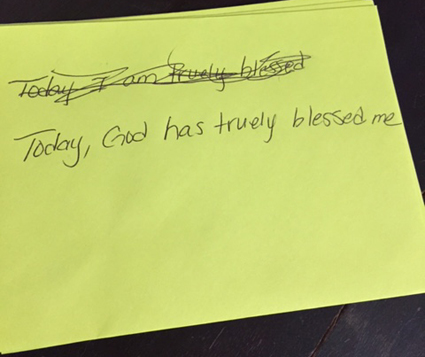 Today I am truely blessed
Today, God has truely blessed me